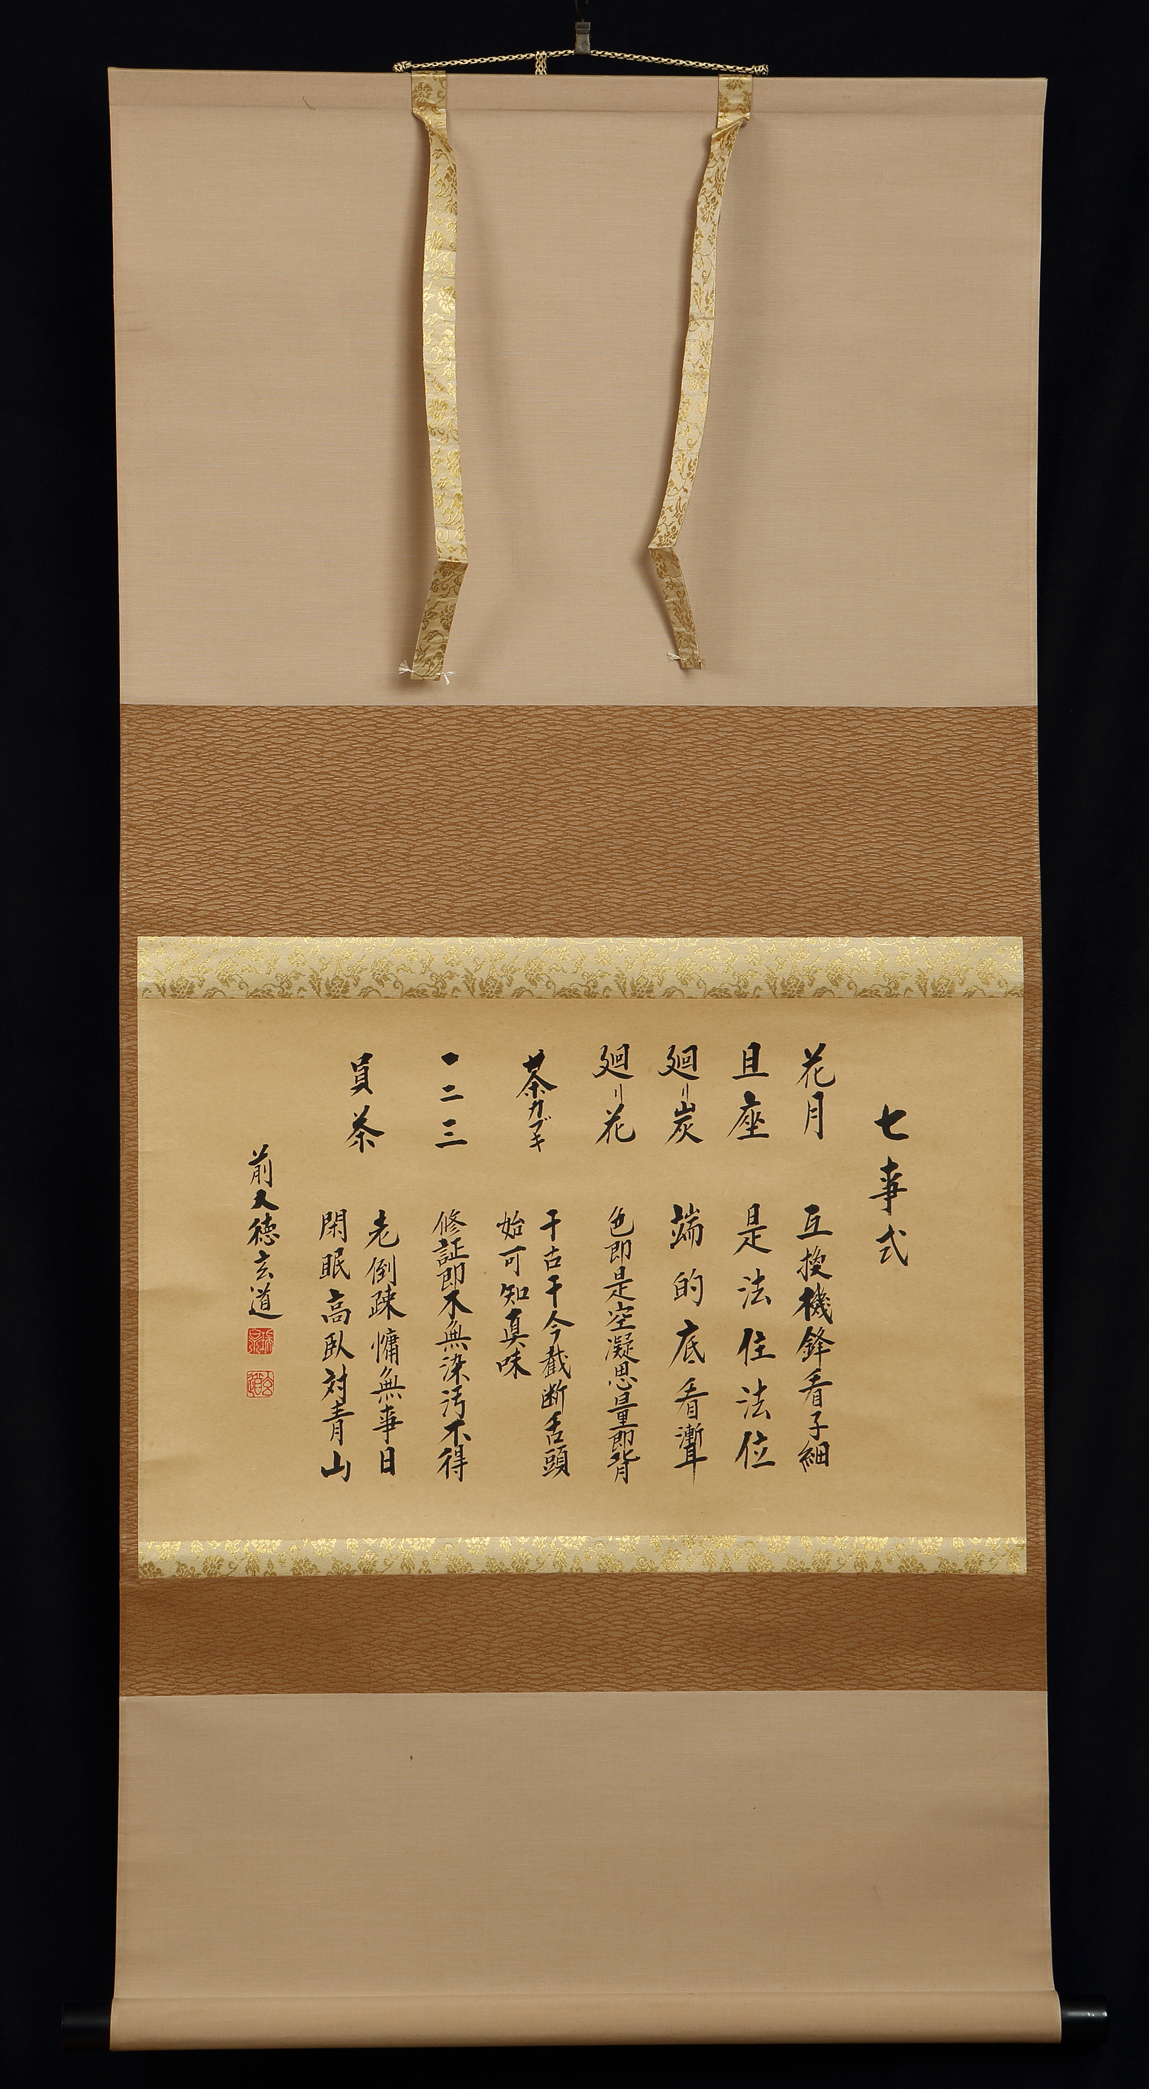 七事式
花月 互換機鋒看子細
且座 是法住法位
廻リ炭 端的底看漸聻
廻リ花 色即是空凝思量即背
茶カブキ 千古千今截断舌頭
始可知真味
一二三 修証即不無染汚不得
員茶 老倒疎慵無事日
閑眠高臥対青山
前大徳玄道